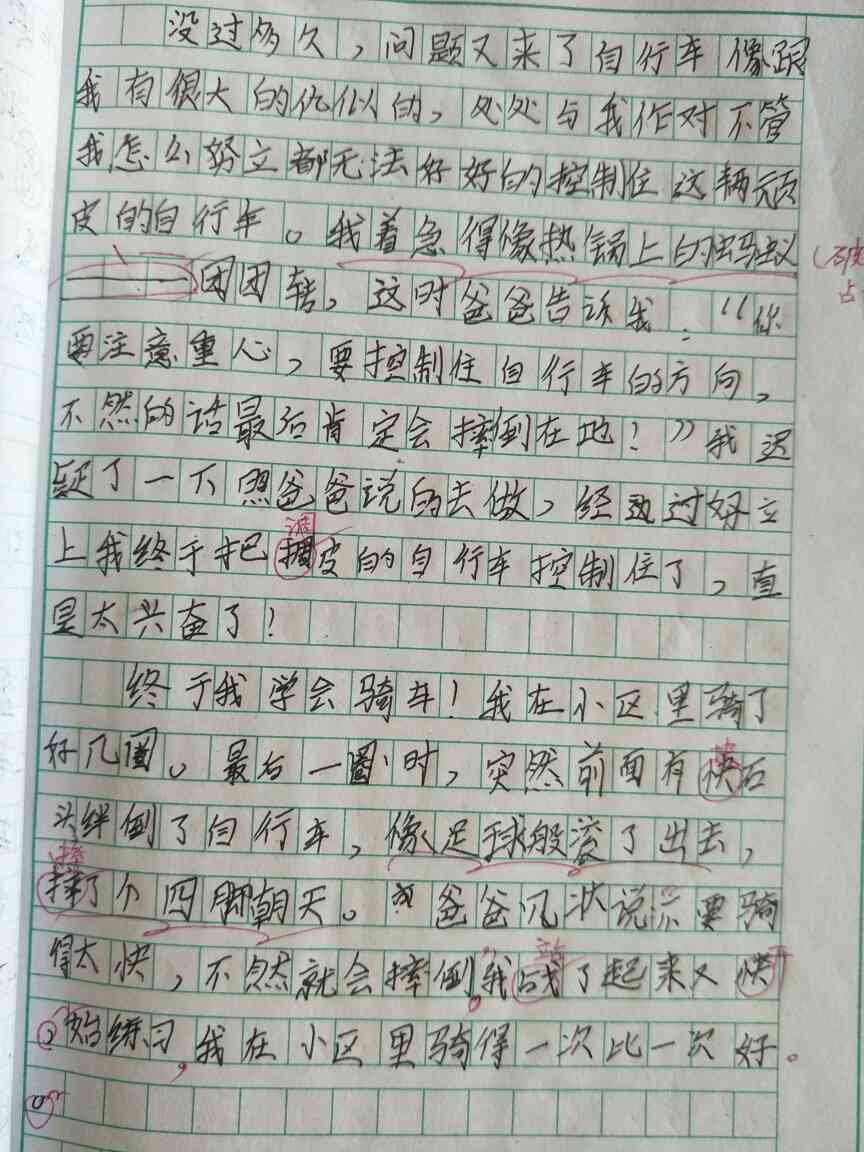 没过多久，问题又来了自行车像跟
我有很大的仇似的，处处与我作对不管
我怎么努立都无法好好的控制住这辆顽
皮的自行车。我着急得像热锅上的蚂蚁
———团团转，这时爸爸告诉我：“你
要注意重心，要控制住自行车的方向，
不然的话最后肯定会摔倒在地！”我迟
疑了一下照爸爸说的去做，经过好立
调
上我终于把皮的自行车控制住了，直
是太兴奋了！
终于我学会骑车！我在小区里骑了
好几圈。最后一圈时，突然前面有快石
块
头绊倒了自行车，像足球般滚了出去，
摔
摔了个四脚朝天。爸爸见状说 要骑
得太快，不然就会摔倒。我 了起来又快
站
开
始练习，我在小区里骑得一次比一次好。